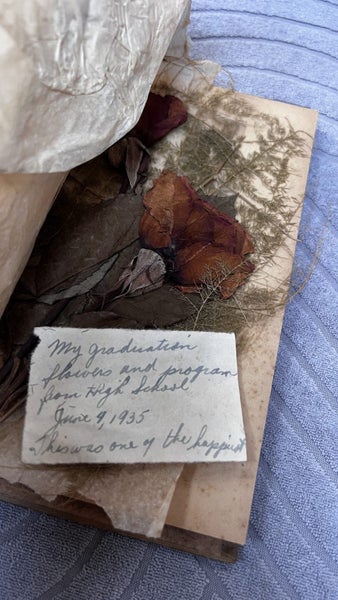 My graduation
flowers and program
from High School
June 9, 1935
This was one of the happiest